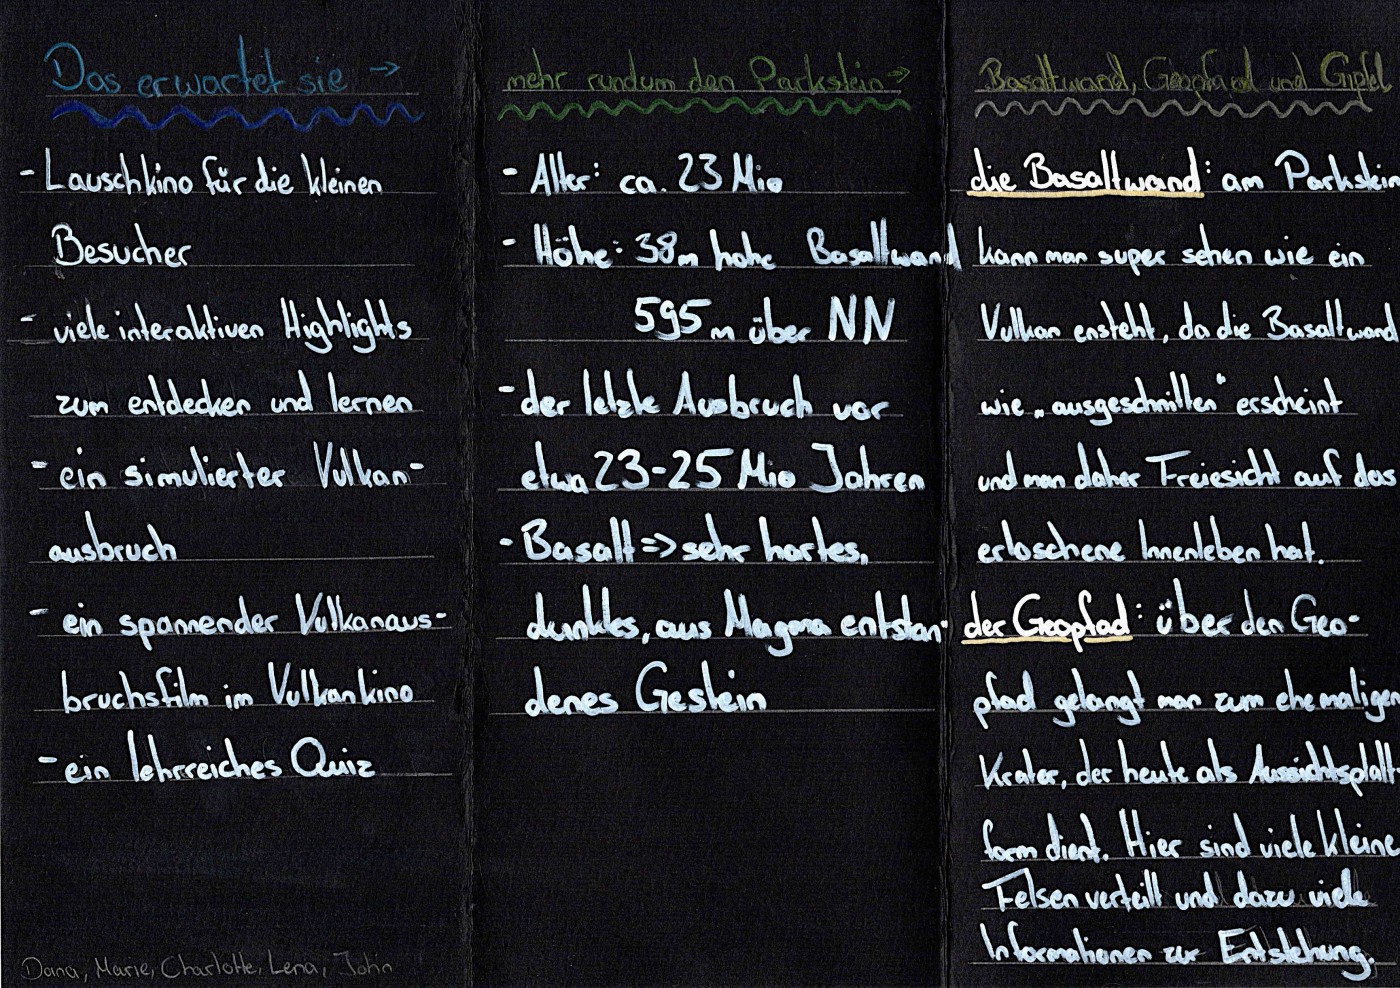 Das erwartet sie →
- Lauschkino für die kleinen
Besucher
- viele interaktiven Highlights
zum entdecken und lernen
- ein simulierter Vulkan-
ausbruch
- ein spannender Vulkanaus-
bruchsfilm im Vulkankino
- ein lehrreiches Quiz
Dana, Marie, Charlotte, Lena, John
mehr rundum den Parkstein →
- Alter: ca. 23 Mio
- Höhe: 38m hohe Basaltwand
595 m über NN
- der letzte Ausbruch vor
etwa 23-25 Mio Jahren
- Basalt => sehr hartes,
dunkles, aus Magma entstan-
denes Gestein
Basaltwand, Geopfad und Gipfel
die Basaltwand: am Parkstein
kann man super sehen wie ein
Vulkan ensteht, da die Basaltwand
wie „ausgeschnitten“ erscheint
und man daher Freiesicht auf das
erloschene Innenleben hat.
der Geopfad: über den Geo-
pfad gelangt man zum ehemaligen
Krater, der heute als Aussichtsplatt-
form dient. Hier sind viele kleine
Felsen verteilt und dazu viele
Informationen zur Entstehung.